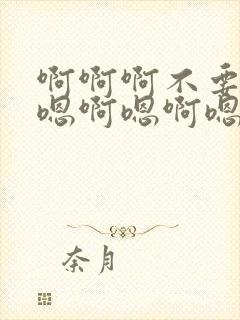 啊啊啊不要
嗯啊嗯啊嗯
奈月